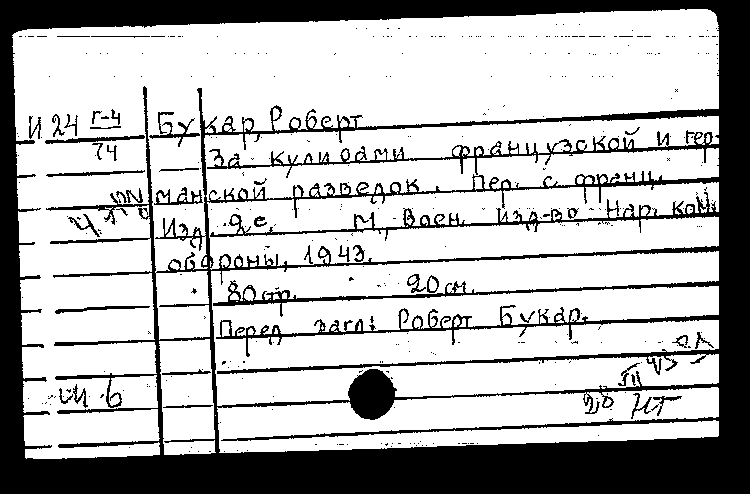 И 24 г-4 Букар, Роберт
74 За кулисами французской и гер-
манской разведок. Пер. с франц.
Изд. 2е. М., Воен. изд-во Нар. ком.
обороны, 1943.
80 стр. 20 см.
Перед загл: Роберт Букар.